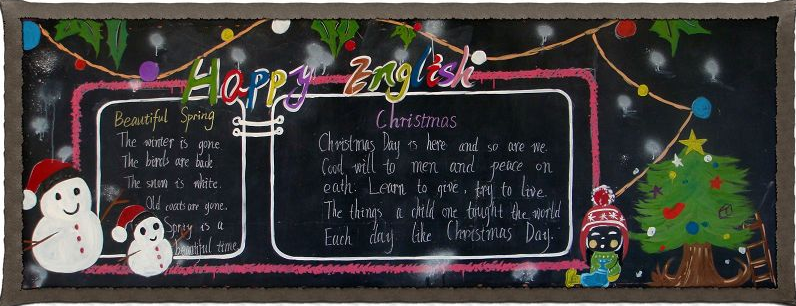 Happy English
Beautiful Spring
The winter is gone
The birds are back
The snow is white.
Old coats are gone.
Spriy is a
beautiful time
Christmas
Christmas Day is here and so are we.
Good will to men and peace on
eath. Learn to give, try to live.
The things a child one tought the world
Each day like Christmas Day.